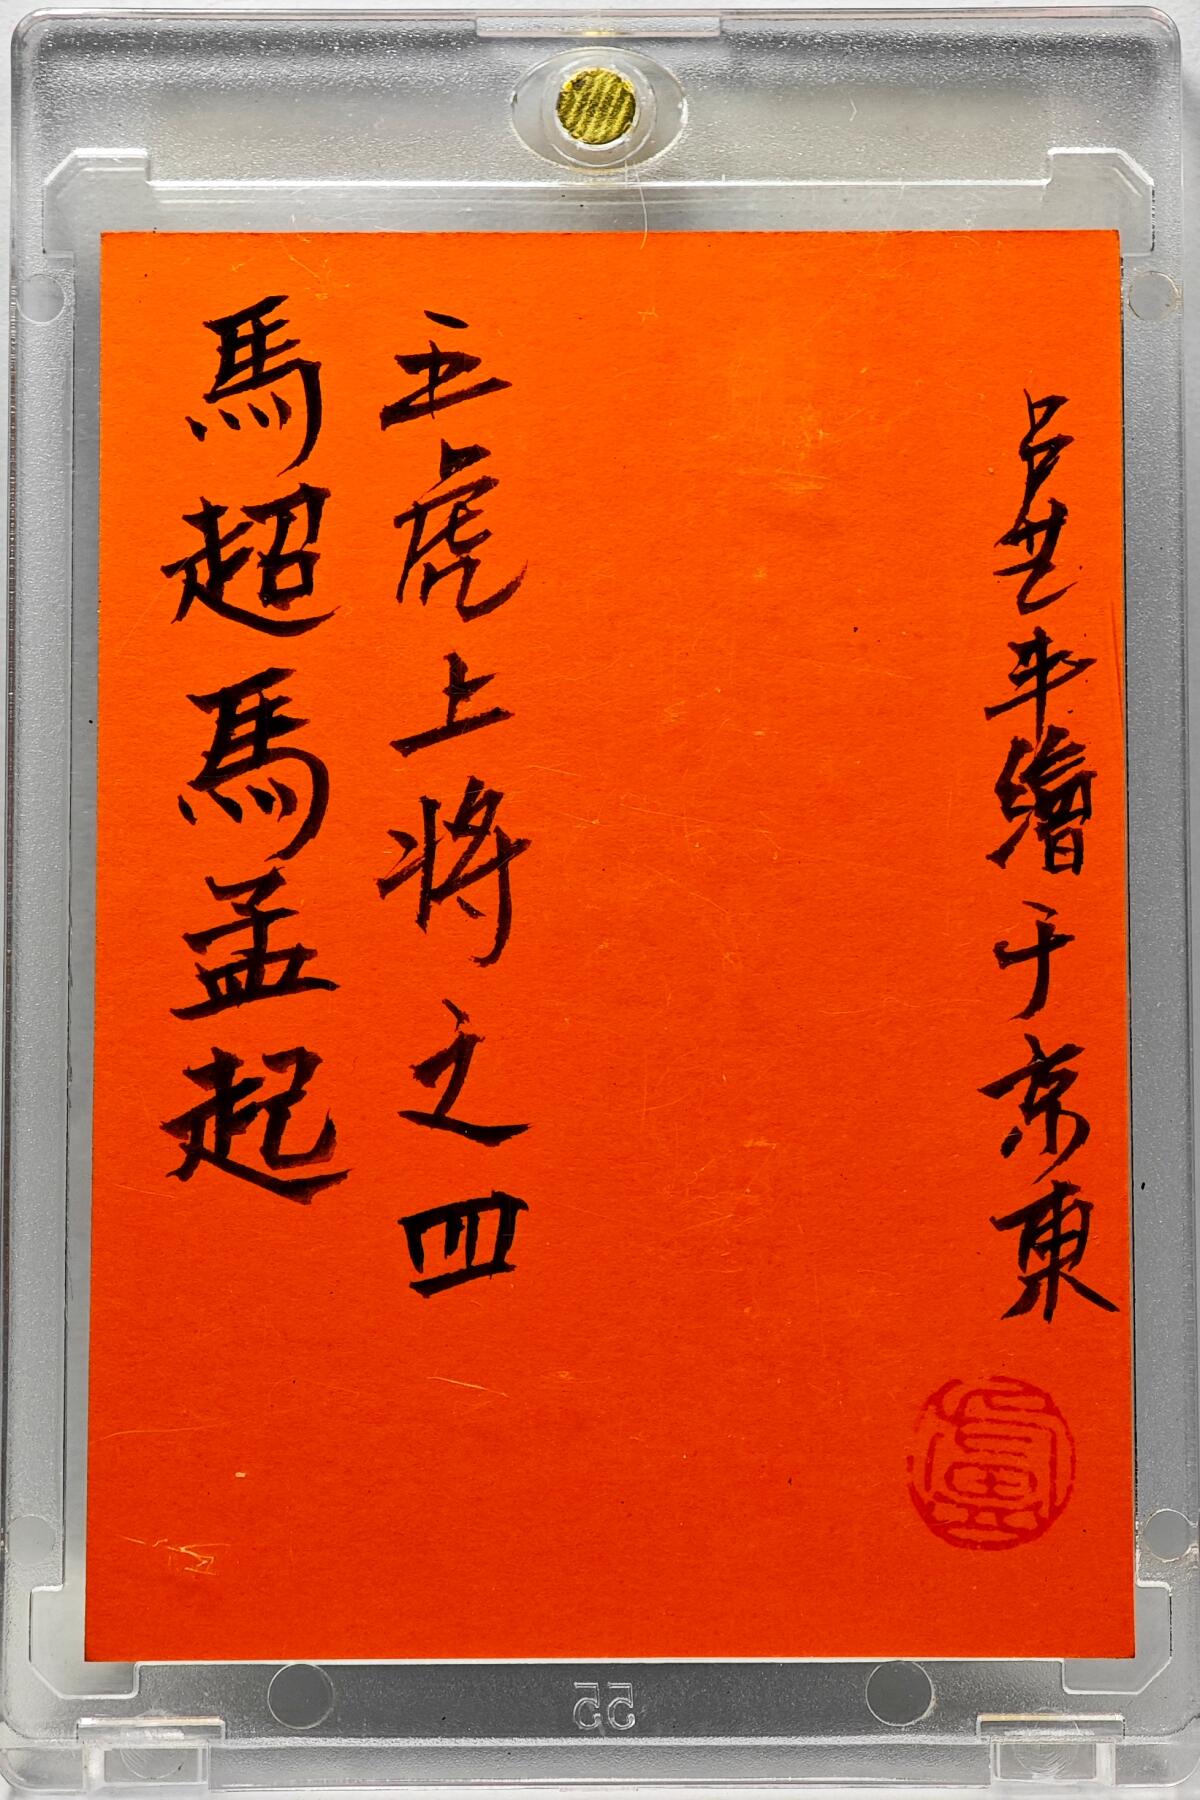 卢世平繪于京東
五虎上将之四
馬超馬孟起
盧
55